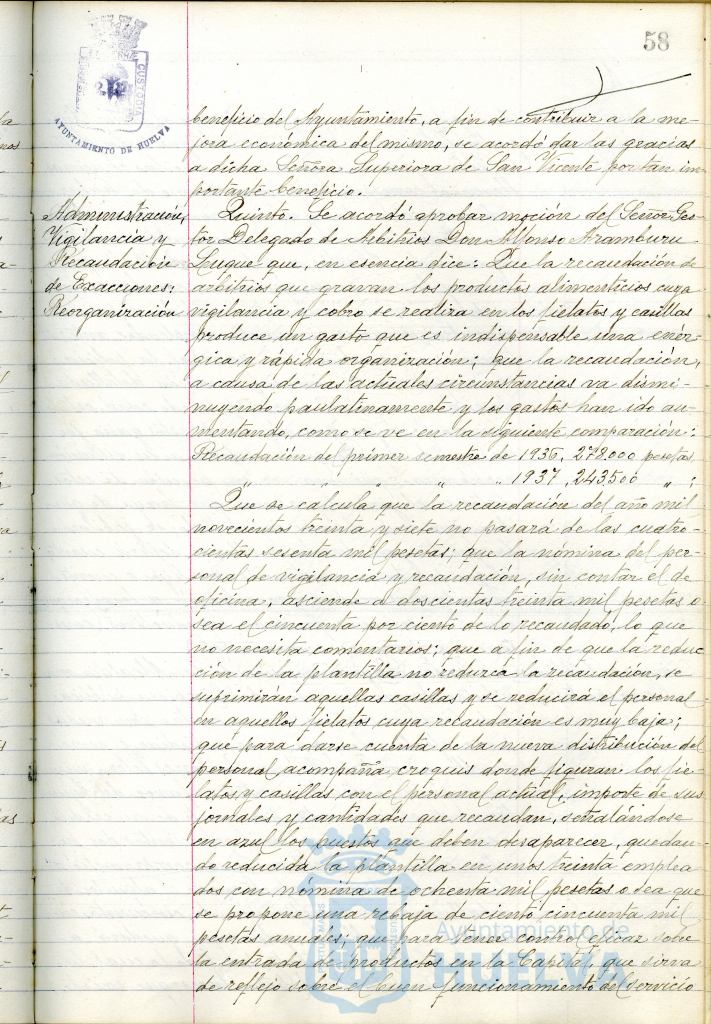 58
AYUNTAMIENTO DE HUELVA
beneficio del Ayuntamiento, a fin de contribuir a la me-
jora económica del mismo, se acordó dar las gracias
a dicha Señora Superiora de San Vicente por tan im-
portante beneficio.
Administración,
Vigilancia y
Recaudación
de Exacciones:
Reorganización
Quinto. Se acordó aprobar moción del Señor Ges-
tor Delegado de Arbitrios Don Alfonso Aramburu
Luque que, en esencia dice: Que la recaudación de
arbitrios que gravan los productos alimenticios cuya
vigilancia y cobro se realiza en los fielatos y casillas
produce un gasto que es indispensable una enér-
gica y rápida organización; que la recaudación,
a causa de las actuales circunstancias va dismi-
nuyendo paulatinamente y los gastos han ido au-
mentando, como se ve en la siguiente comparación:
Recaudación del primer semestre de 1936, 278.000 pesetas
" " " " 1937, 243.500 " ;
Que se calcula que la recaudación del año mil
novecientos treinta y siete no pasará de las cuatro-
cientas sesenta mil pesetas; que la nómina del per-
sonal de vigilancia y recaudación, sin contar el de
oficina, asciende a doscientas treinta mil pesetas o
sea el cincuenta por ciento de lo recaudado, lo que
no necesita comentarios; que a fin de que la reduc-
ción de la plantilla no reduzca la recaudación, se
suprimirán aquellas casillas y se reducirá el personal
en aquellos fielatos cuya recaudación es muy baja;
que para darse cuenta de la nueva distribución del
personal acompaña croquis donde figuran los fie-
latos y casillas con el personal actual, importe de sus
jornales y cantidades que recaudan, señalándose
en azul los puestos que deben desaparecer, quedan-
do reducida la plantilla en unos treinta emplea-
dos con nómina de ochenta mil pesetas o sea que
se propone una rebaja de ciento cincuenta mil
pesetas anuales; que para tener control eficaz sobre
la entrada de productos en la Capital, que sirva
de reflejo sobre el buen funcionamiento del servicio
Ayuntamiento de
HUELVA